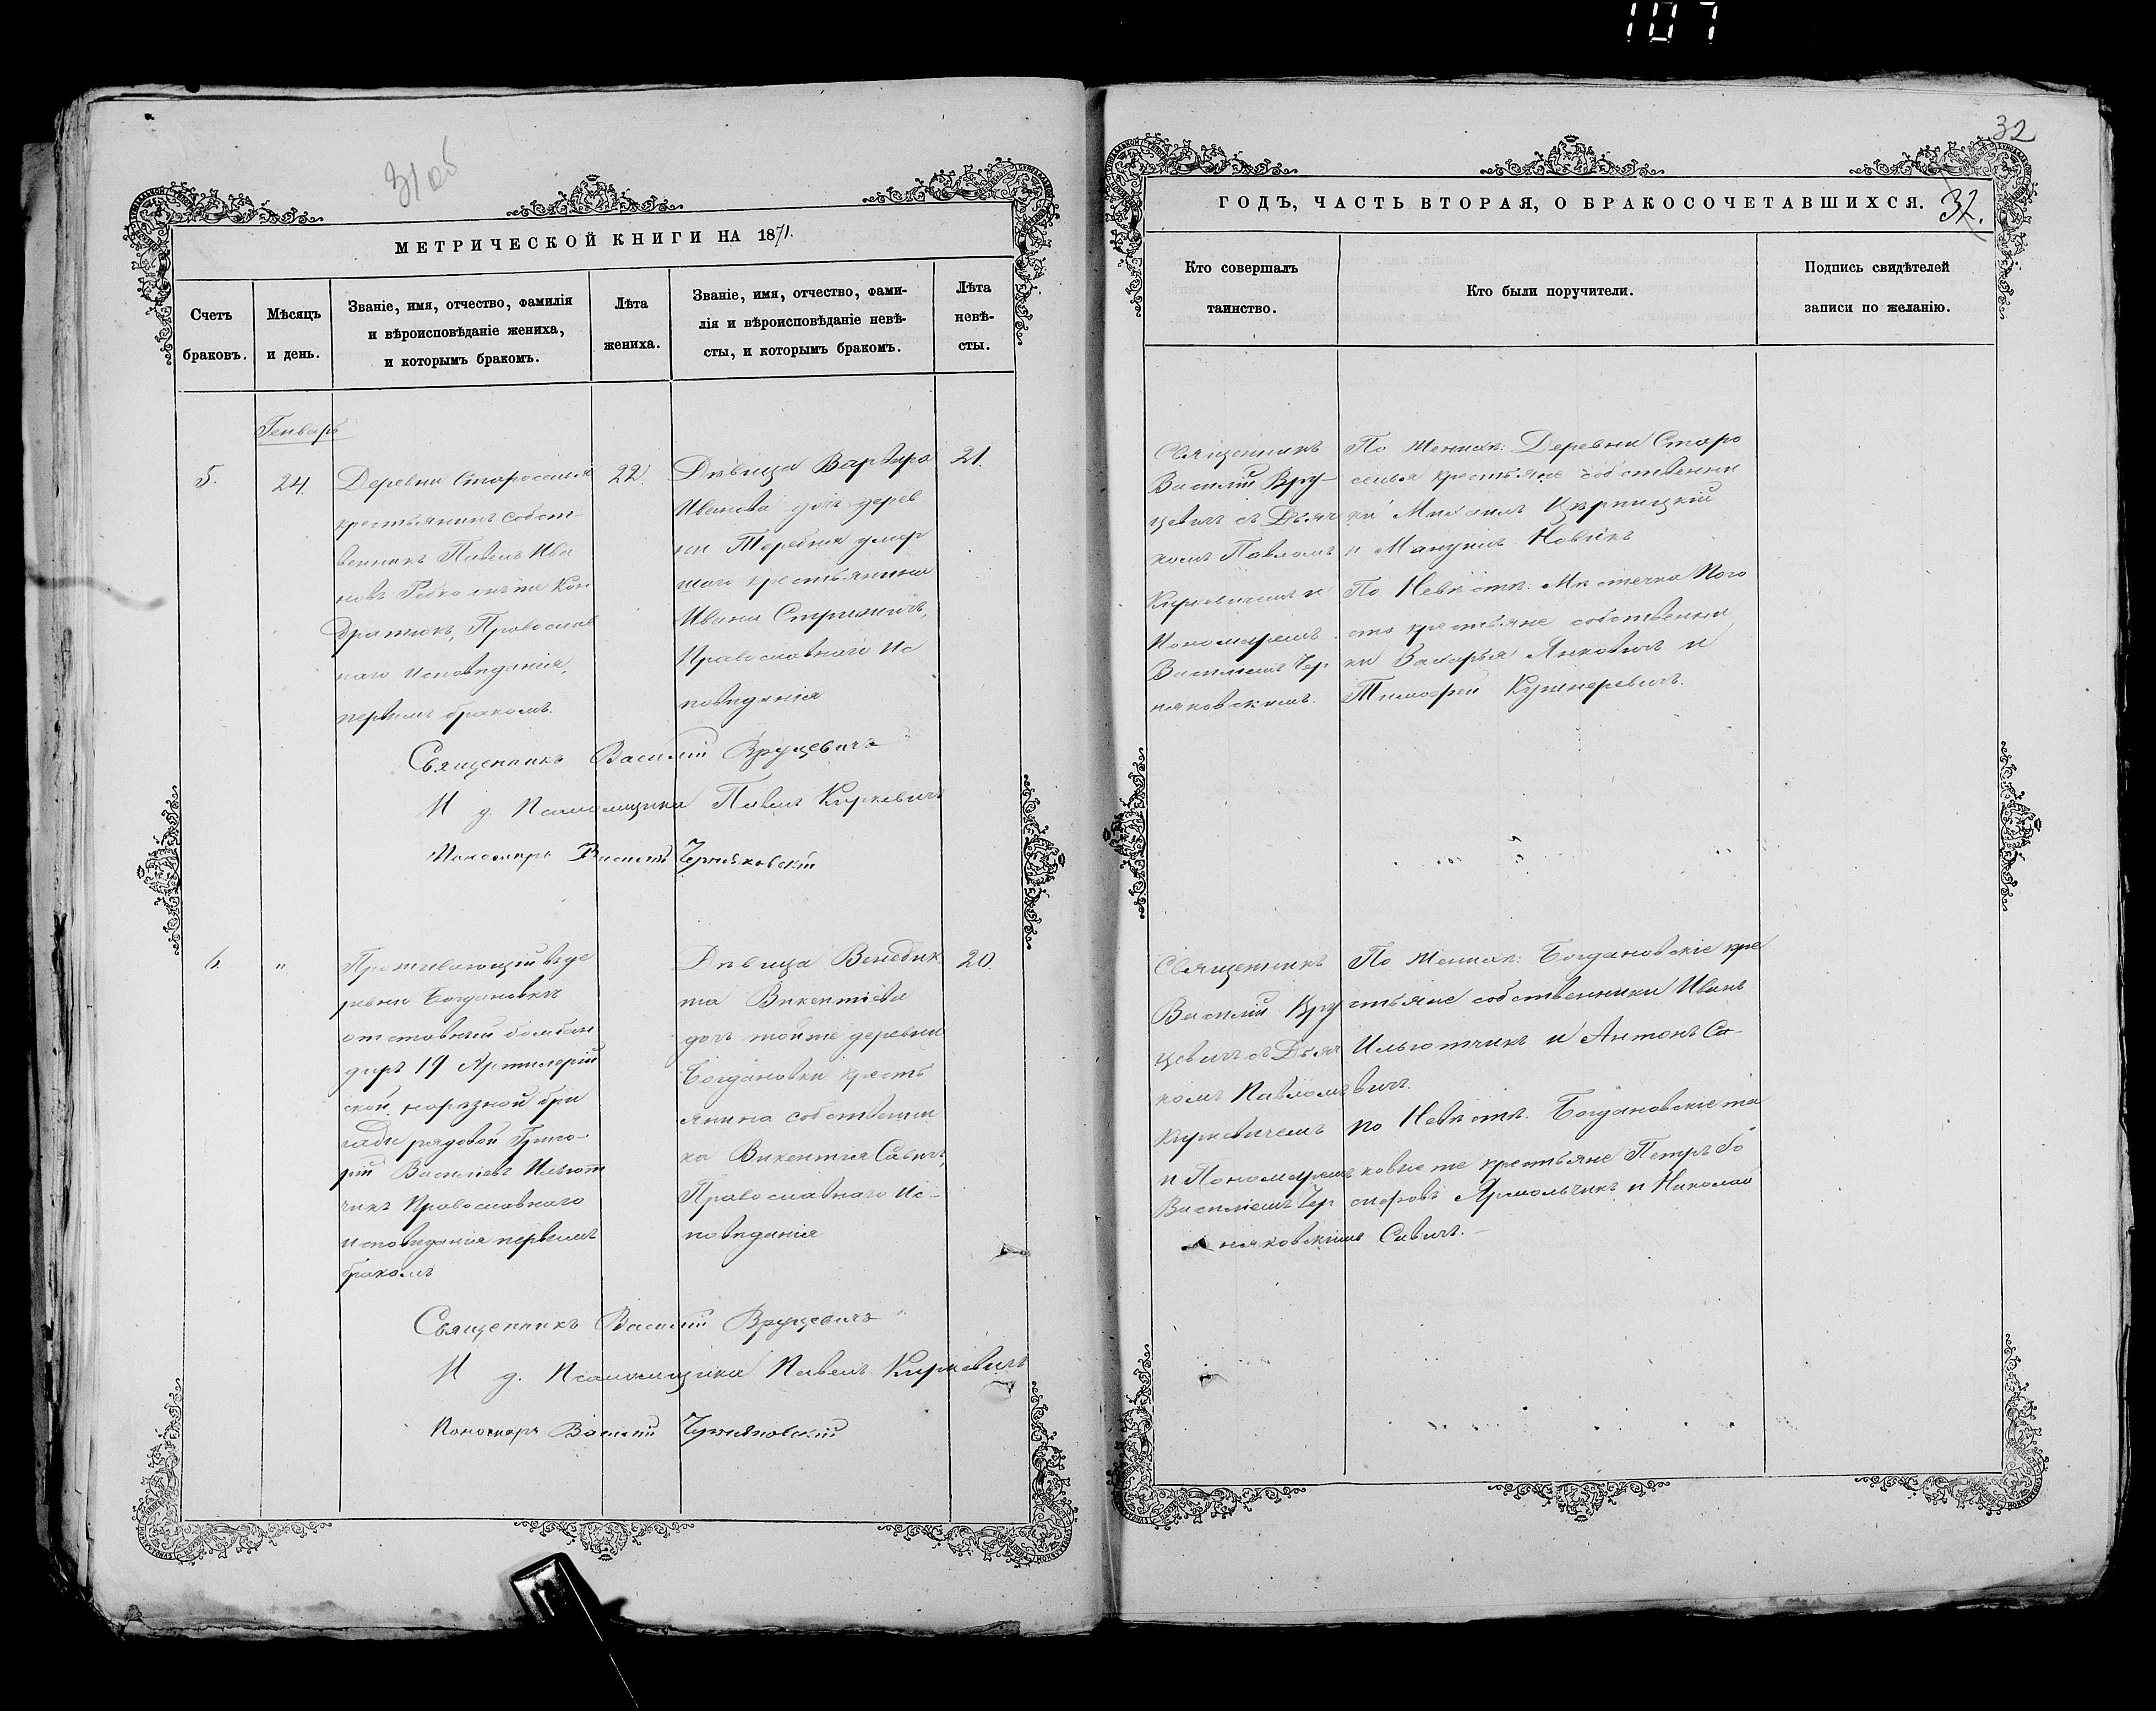 107
31 об
МЕТРИЧЕСКОЙ КНИГИ НА 1871.
Счетъ браковъ.
Мѣсяцъ и день.
Званіе, имя, отчество, фамилія
и вѣроисповѣданіе жениха,
и которымъ бракомъ.
Лѣта жениха.
Званіе, имя, отчество, фами-
лія и вѣроисповѣданіе невѣ-
сты, и которымъ бракомъ.
Лѣта невѣ-
сты.
Генварь
5.
24.
Деревни Староселья
крестьянинъ собст-
венникъ Павелъ Ива
новъ онъ же Кон
дратюкъ, Православ
наго исповѣданія,
первымъ бракомъ.
22.
Дѣвица Варвара
Иванова дочь дерев
ни Теребня умер
шаго крестьянина
Ивана
Православнаго Ис
повѣданія
21.
Священникъ Василій Вруцевичъ
И д. Псаломщика Павелъ Киркевичъ
Пономарь Василій Черняковскій
6.
"
Проживающій въ де
ревни Богдановкѣ
отставный бомбан
диръ 19 Артилерій
ской
рядовой Григо-
рій Васильевъ Ильют
чикъ Православнаго
исповѣданія первымъ
бракомъ
Дѣвица Венедик
та Викентіева
дочь тойже деревни
Богдановки кресть
янина собственни
ка Викентія Савича,
Православнаго Ис-
повѣданія
20.
Священникъ Василій Вруцевичъ
И д. Псаломщика Павелъ Киркевичъ
Пономарь Василій Черняковскій
32
ГОДЪ, ЧАСТЬ ВТОРАЯ, О БРАКОСОЧЕТАВШИХСЯ.
32.
Кто совершалъ
таинство.
Кто были поручители.
Подпись свидѣтелей
записи по желанію.
Священникъ
Василій Вру-
цевичъ съ Дьяч
комъ Павломъ
Киркевичемъ и
Пономаремъ
Василіемъ Чер
няковскимъ.
По Женихѣ: Деревни Старо
селья крестьяне собственни
ки Михаилъ
и Мануилъ Новикъ
По Невѣстѣ: Мѣстечка Пого
ста крестьяне собственни
ки Захарья Янковичъ и
Тимофей Кушнеревичъ.
Священникъ
Василій Вру
цевичъ съ Дьяч
комъ Павломъ
Киркевичемъ
и Пономаремъ
Василіемъ Чер
няковскимъ
По Женихѣ: Богдановскіе кре
стьяне собственники Иванъ
Ильютчикъ и Антонъ Са-
вичъ.
по Невѣстѣ. Богдановскіе та
ковые же крестьяне Петръ
Ярмольчикъ и Николай
Савичъ.-